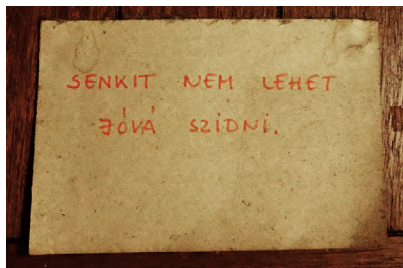 SENKIT NEM LEHET
JÓVÁ SZIDNI.